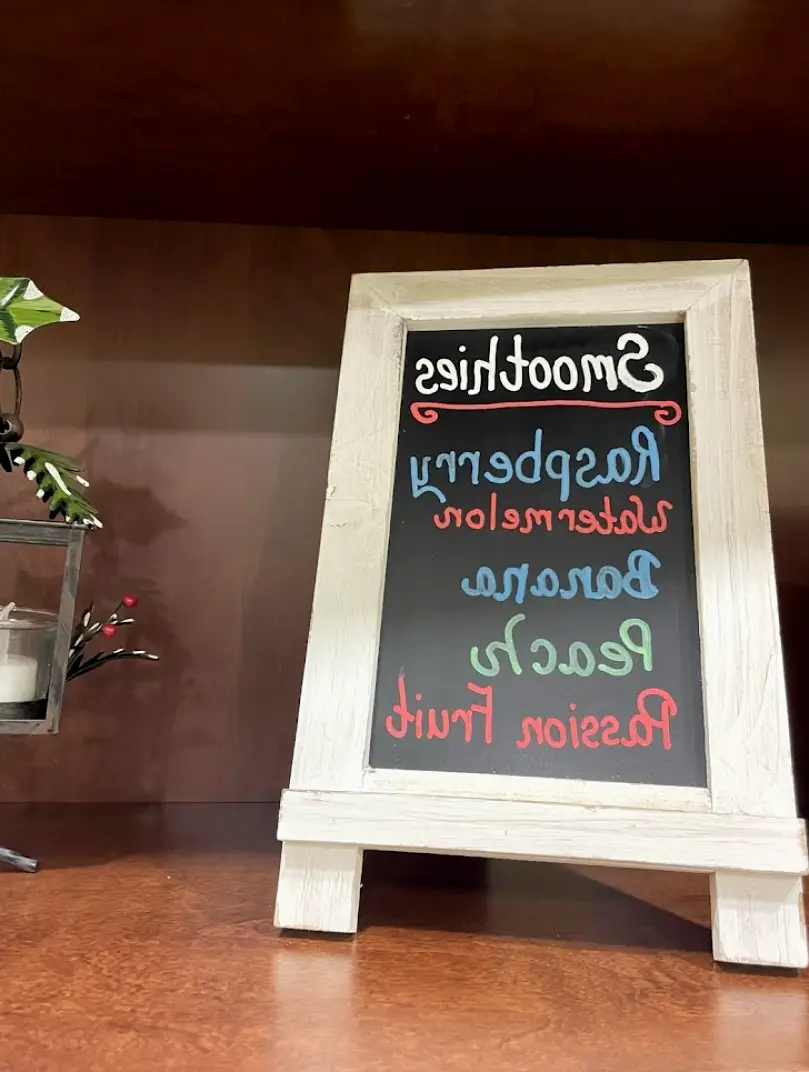 Smoothies
Raspberry
Watermelon
Banana
Peach
Passion Fruit